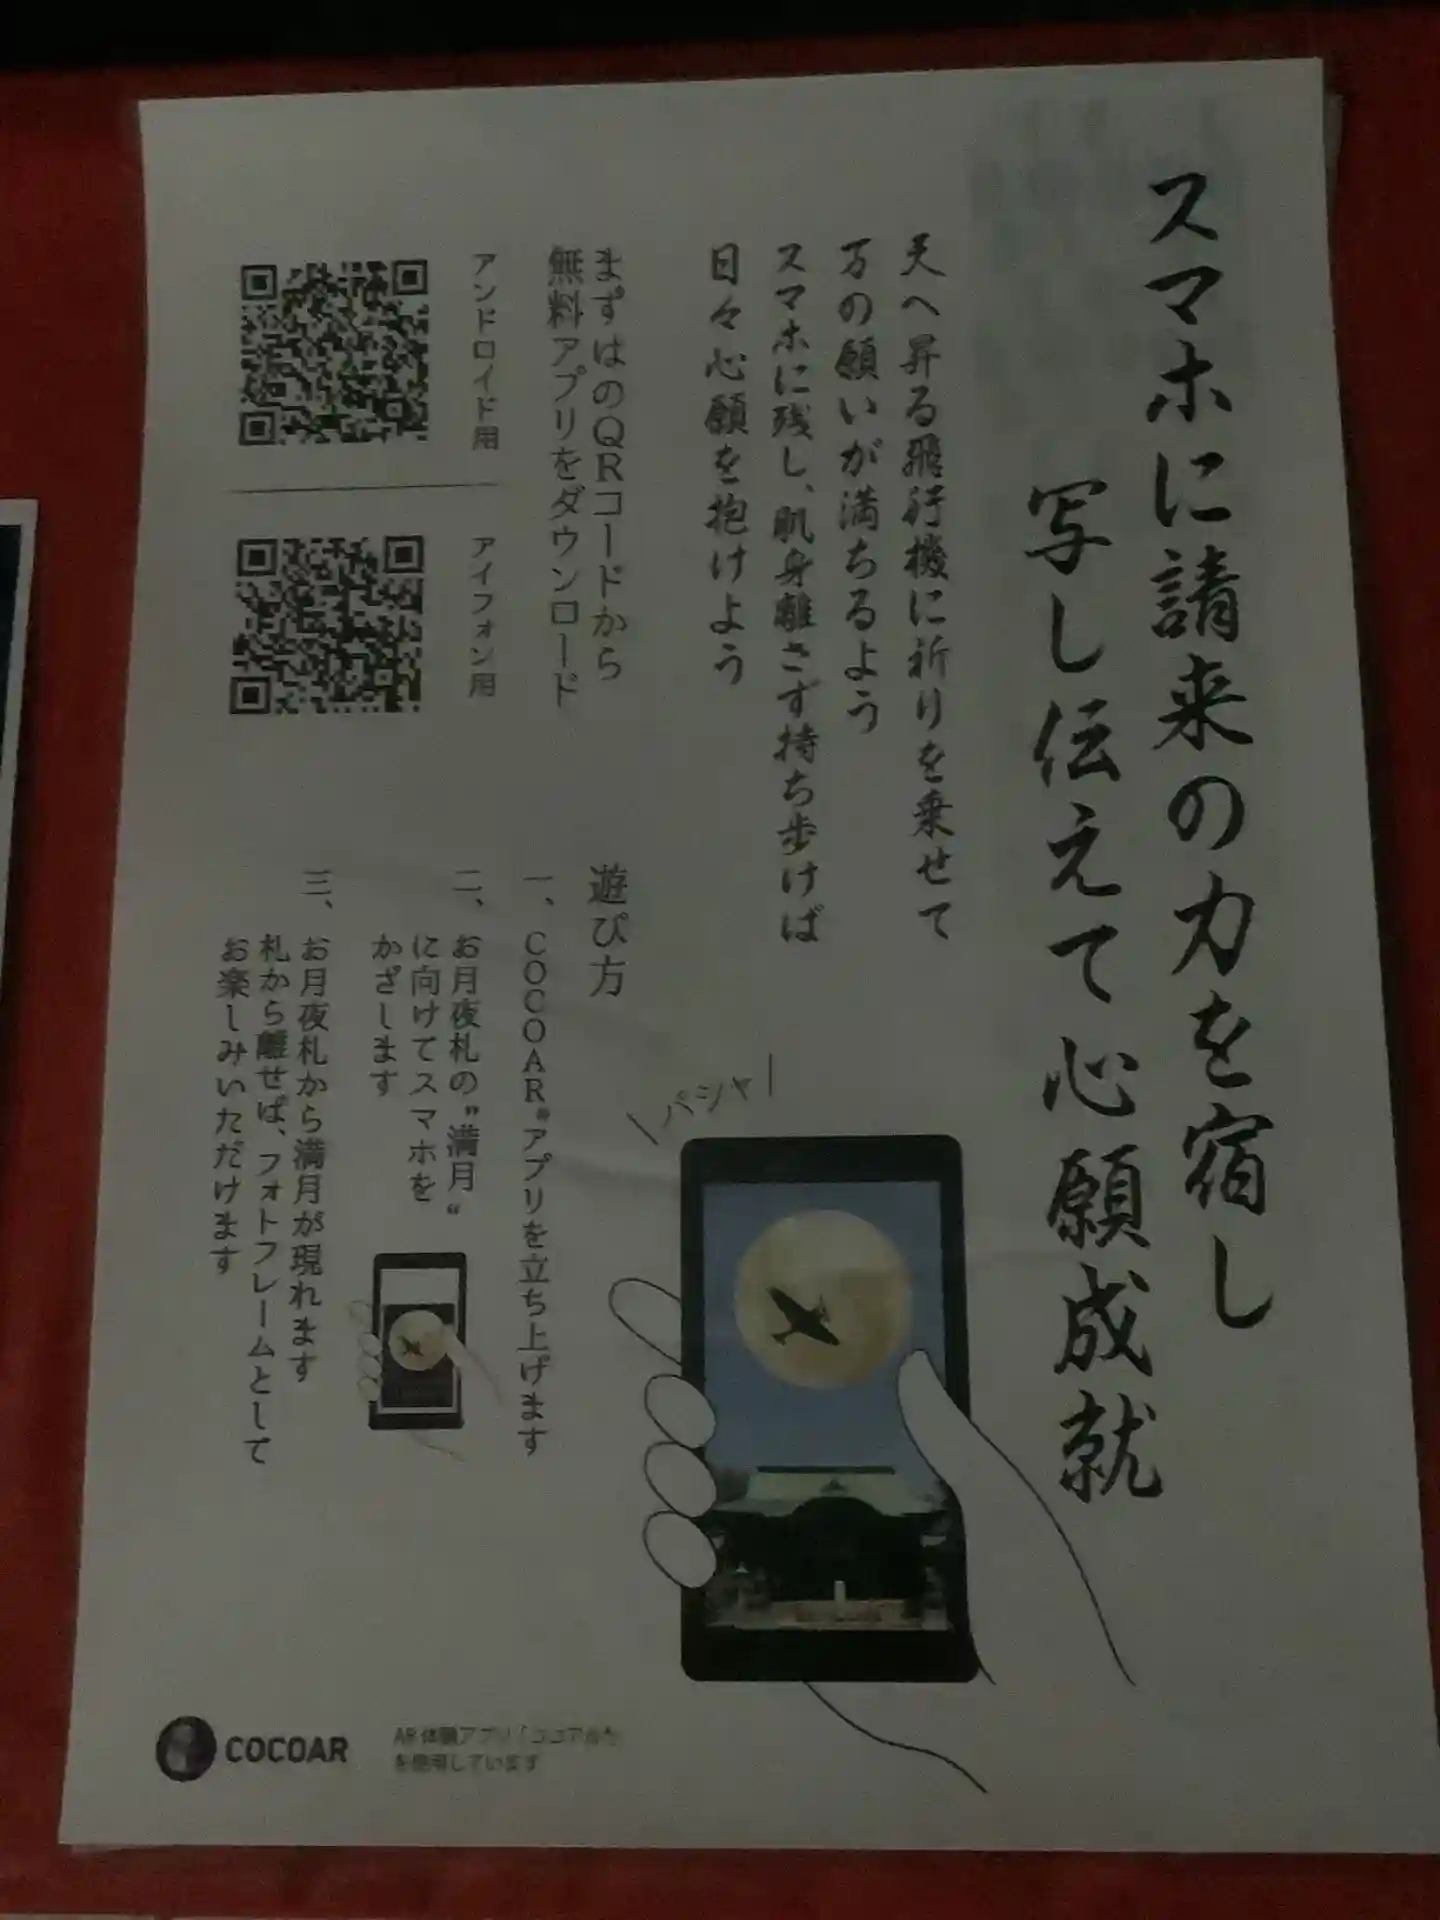 スマホに請来の力を宿し
写し伝えて心願成就
天へ昇る飛行機に祈りを乗せて
万の願いが満ちるよう
スマホに残し、肌身離さず持ち歩けば
日々心願を抱けよう
まずはのQRコードから
無料アプリをダウンロード
アンドロイド用
アイフォン用
遊び方
一、COCOAR®アプリを立ち上げます
二、お月夜札の"満月"
に向けてスマホを
かざします
三、お月夜札から満月が現れます
札から離せば、フォトフレームとして
お楽しみいただけます
パシャ
COCOAR
AR体験アプリ「ココアル」
を使用しています